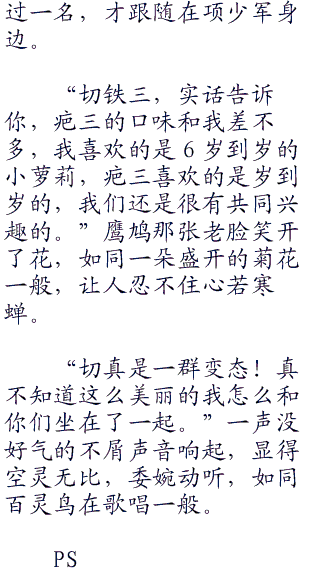 过一名，才跟随在项少军身
边。
“切铁三，实话告诉
你，疤三的口味和我差不
多，我喜欢的是6岁到岁的
小萝莉，疤三喜欢的是岁到
岁的，我们还是很有共同兴
趣的。”鹰鸠那张老脸笑开
了花，如同一朵盛开的菊花
一般，让人忍不住心若寒
蝉。
“切真是一群变态！真
不知道这么美丽的我怎么和
你们坐在了一起。”一声没
好气的不屑声音响起，显得
空灵无比，委婉动听，如同
百灵鸟在歌唱一般。
PS